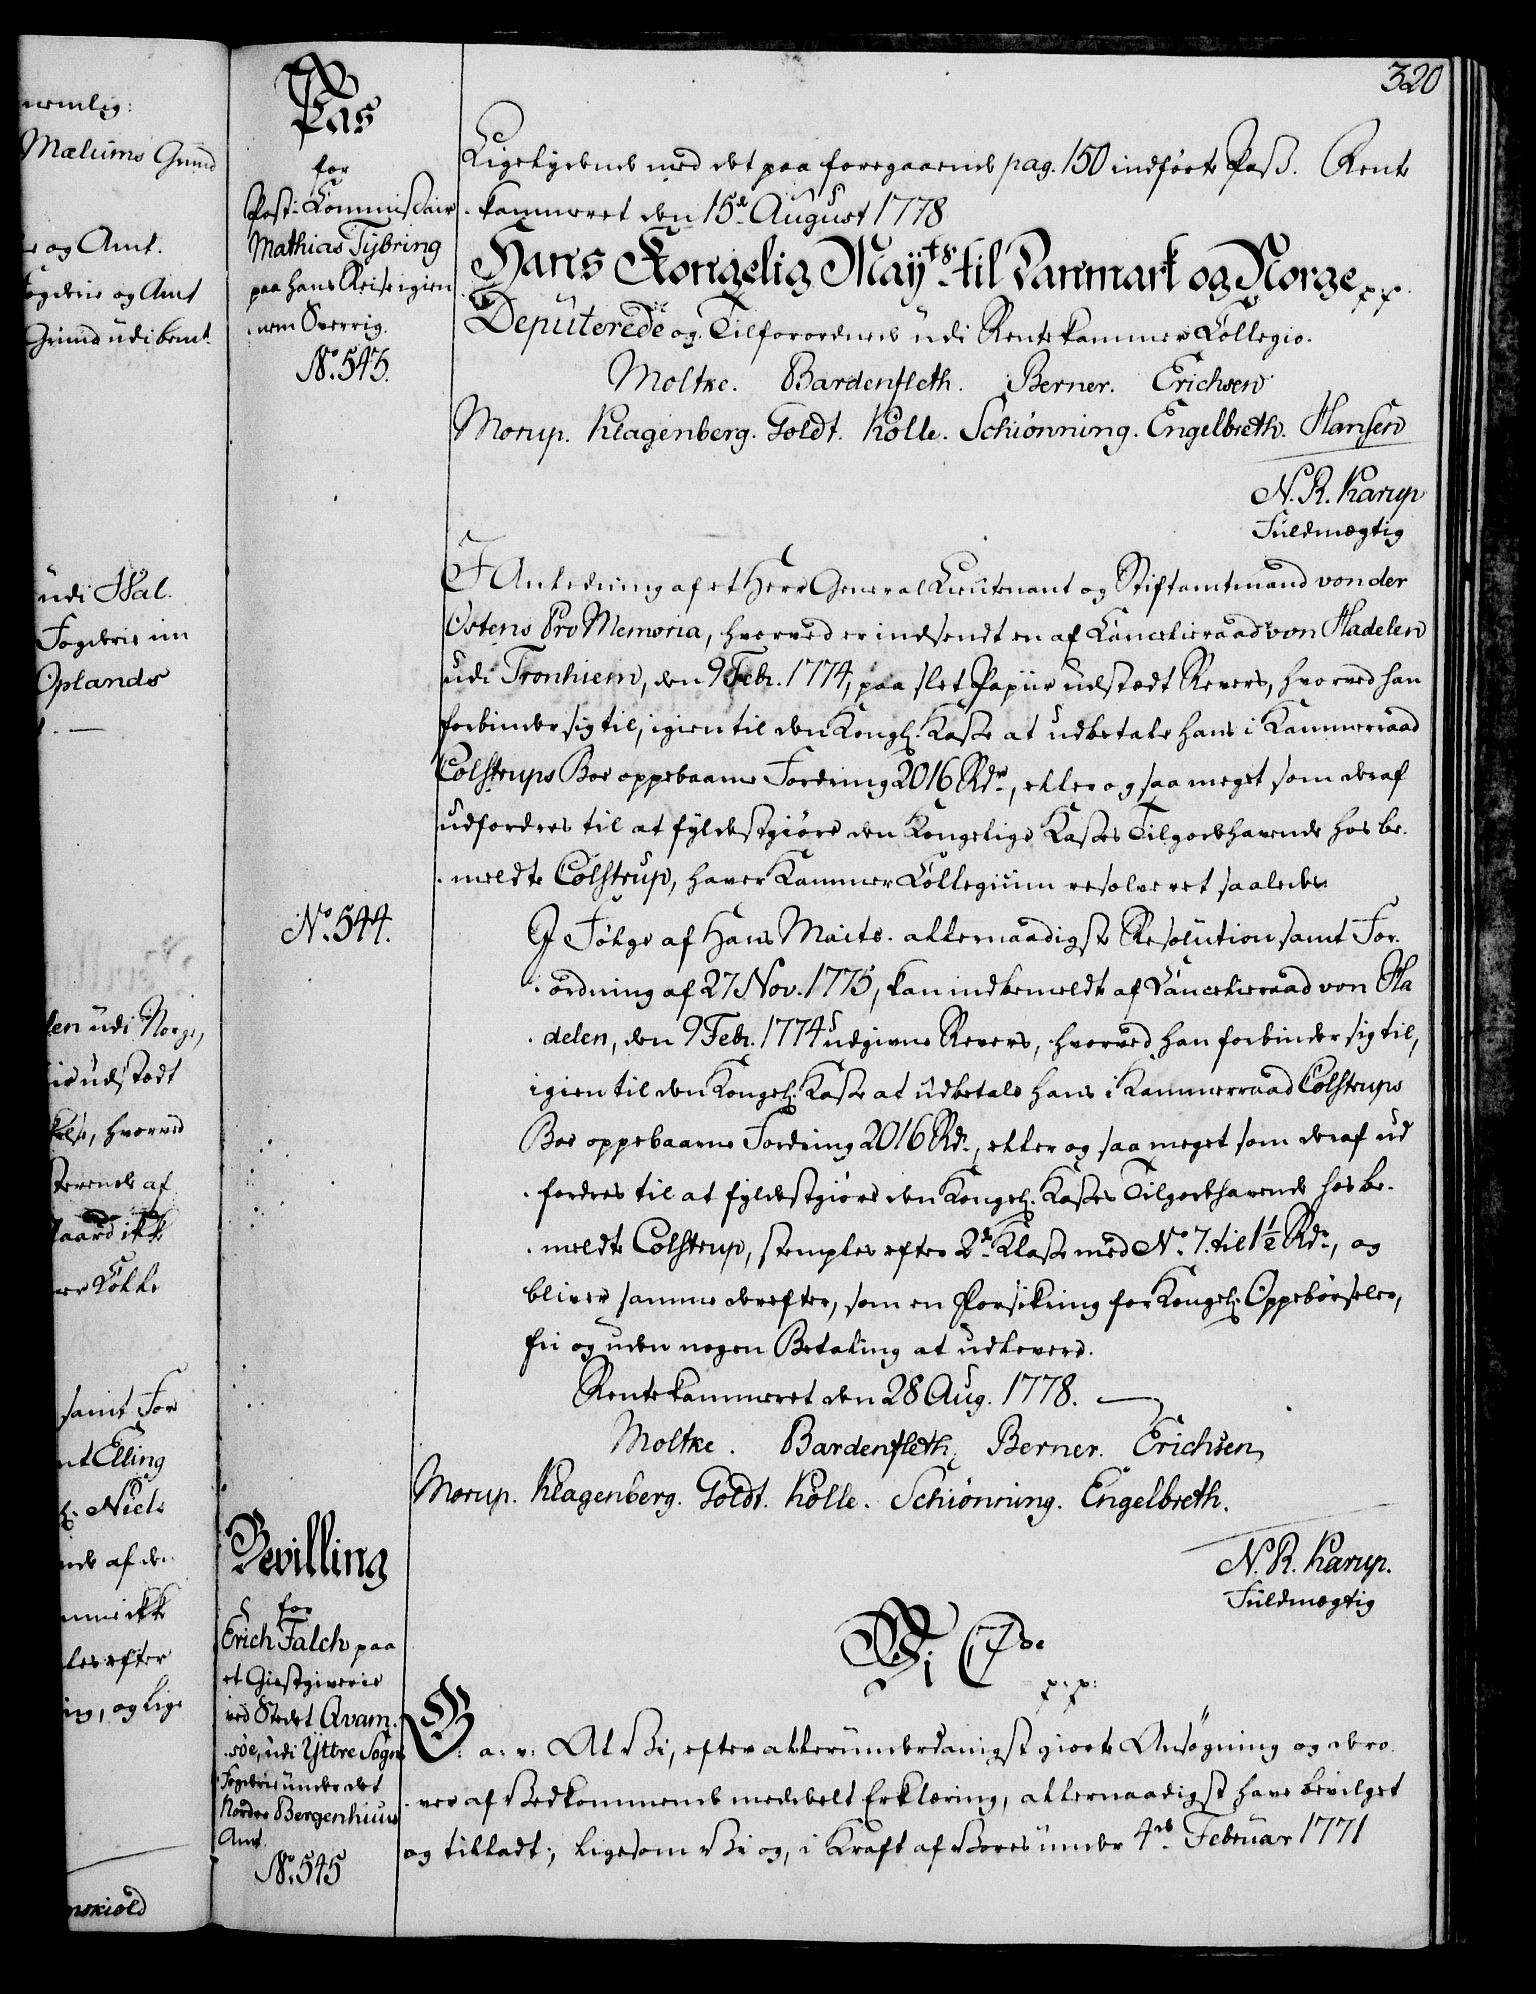 320
Pas
for
Post-Commissair
Mathias Tybring
paa hans Reise igien
nem Sverrig.
No. 543.
Ligelydende med det paa foregaaende pag. 150 indførte Pass. Rente
kammeret den 15de August 1778
Hans Kongelig Mayts til Danmark og Norge pp.
Deputerede og Tilforordnede udi Rentekammer Collegio.
Moltke. Bardenfleth. Berner. Erichsen
Morup. Klagenberg. Goldt. Kölle. Schiönning. Engelbreth. Hansen
N. R. Karup
Fuldmægtig
No. 544.
I Anledning af et Herr General Lieutenant og Stiftamtmand von der
Ostens Pro Memoria, hvorved er indsendt en af Cancelieraad von Hadelen
udi Tronhiem, den 9 Febr. 1774, paa slet Papiir udstædt Revers, hvorved han
forbinder sig til, igien til den Kongel. Kasse at udbetale hans i Kammerraad
Colstrups Boe oppebaarne Fordring 2016 Rdr., eller og saa meget som deraf
udfordres til at fyldestgiøre den Kongelige Kasses Tilgodehavende hos be-
meldte Colstrup, haver Kammer Collegium resolveret saaledes
I Følge af Hans Maits. allernaadigste Resolution samt For-
ordning af 27 Nov. 1775, kan indbemeldte af Cancelieraad von Ha
delen, den 9 Febr. 1774 udgivne Revers, hvorved han forbinder sig til,
igien til den Kongel. Kasse at udbetale hans i Kammerraad Colstrups
Boe oppebaarne Fordring 2016 Rd., eller og saa meget som deraf ud
fordres til at fyldestgiøre den Kongel. Kasses Tilgodehavende hos be-
meldte Colstrup, stemples efter 2de Klasse med No. 7. til 1½ Rdr., og
bliver samme derefter, som en Forsikring for Kongel. Oppebørseler,
fri og uden nogen Betaling at udlevere.
Rentekammeret den 28 Aug. 1778.
Moltke. Bardenfleth. Berner. Erichsen
Morup. Klagenberg. Goldt. Kölle. Schiönning. Engelbreth.
N. R. Karup.
Fuldmægtig
Bevilling
for
Erich Falch paa
et Giestgiverie
ved Stedet Qvam-
søe, udi Yttre Sogns
Fogderie under det
Nordre Bergenhuus
Amt.
No. 545
Vi C 7de
p. p.
G. a. v. At Vi, efter allerunderdanigst giorte Ansøgning og dero-
ver af Vedkommende meddelt Erklæring, allernaadigst have bevilget
og tilladt, ligesom Vi og, i Kraft af Vores under 4de Februar 1771
nemlig:
Mælums Grund
og Amt.
Fogderie og Amt
Grund udi bemt.
udi Hal.
Fogderie im
Oplands
len udi Norge,
udstædt
hvorved
af
ikke
samt For
Elling
Niels
af den
ikke
efter
og lige